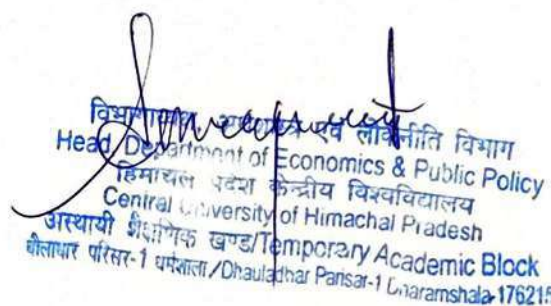 विभागाध्यक्ष, अर्थशास्त्र एवं लोकनीति विभाग
Head, Department of Economics & Public Policy
हिमाचल प्रदेश केन्द्रीय विश्वविद्यालय
Central University of Himachal Pradesh
अस्थायी शैक्षणिक खण्ड/Temporary Academic Block
धौलाधार परिसर-1 धर्मशाला/Dhauladhar Parisar-1 Dharamshala-176215